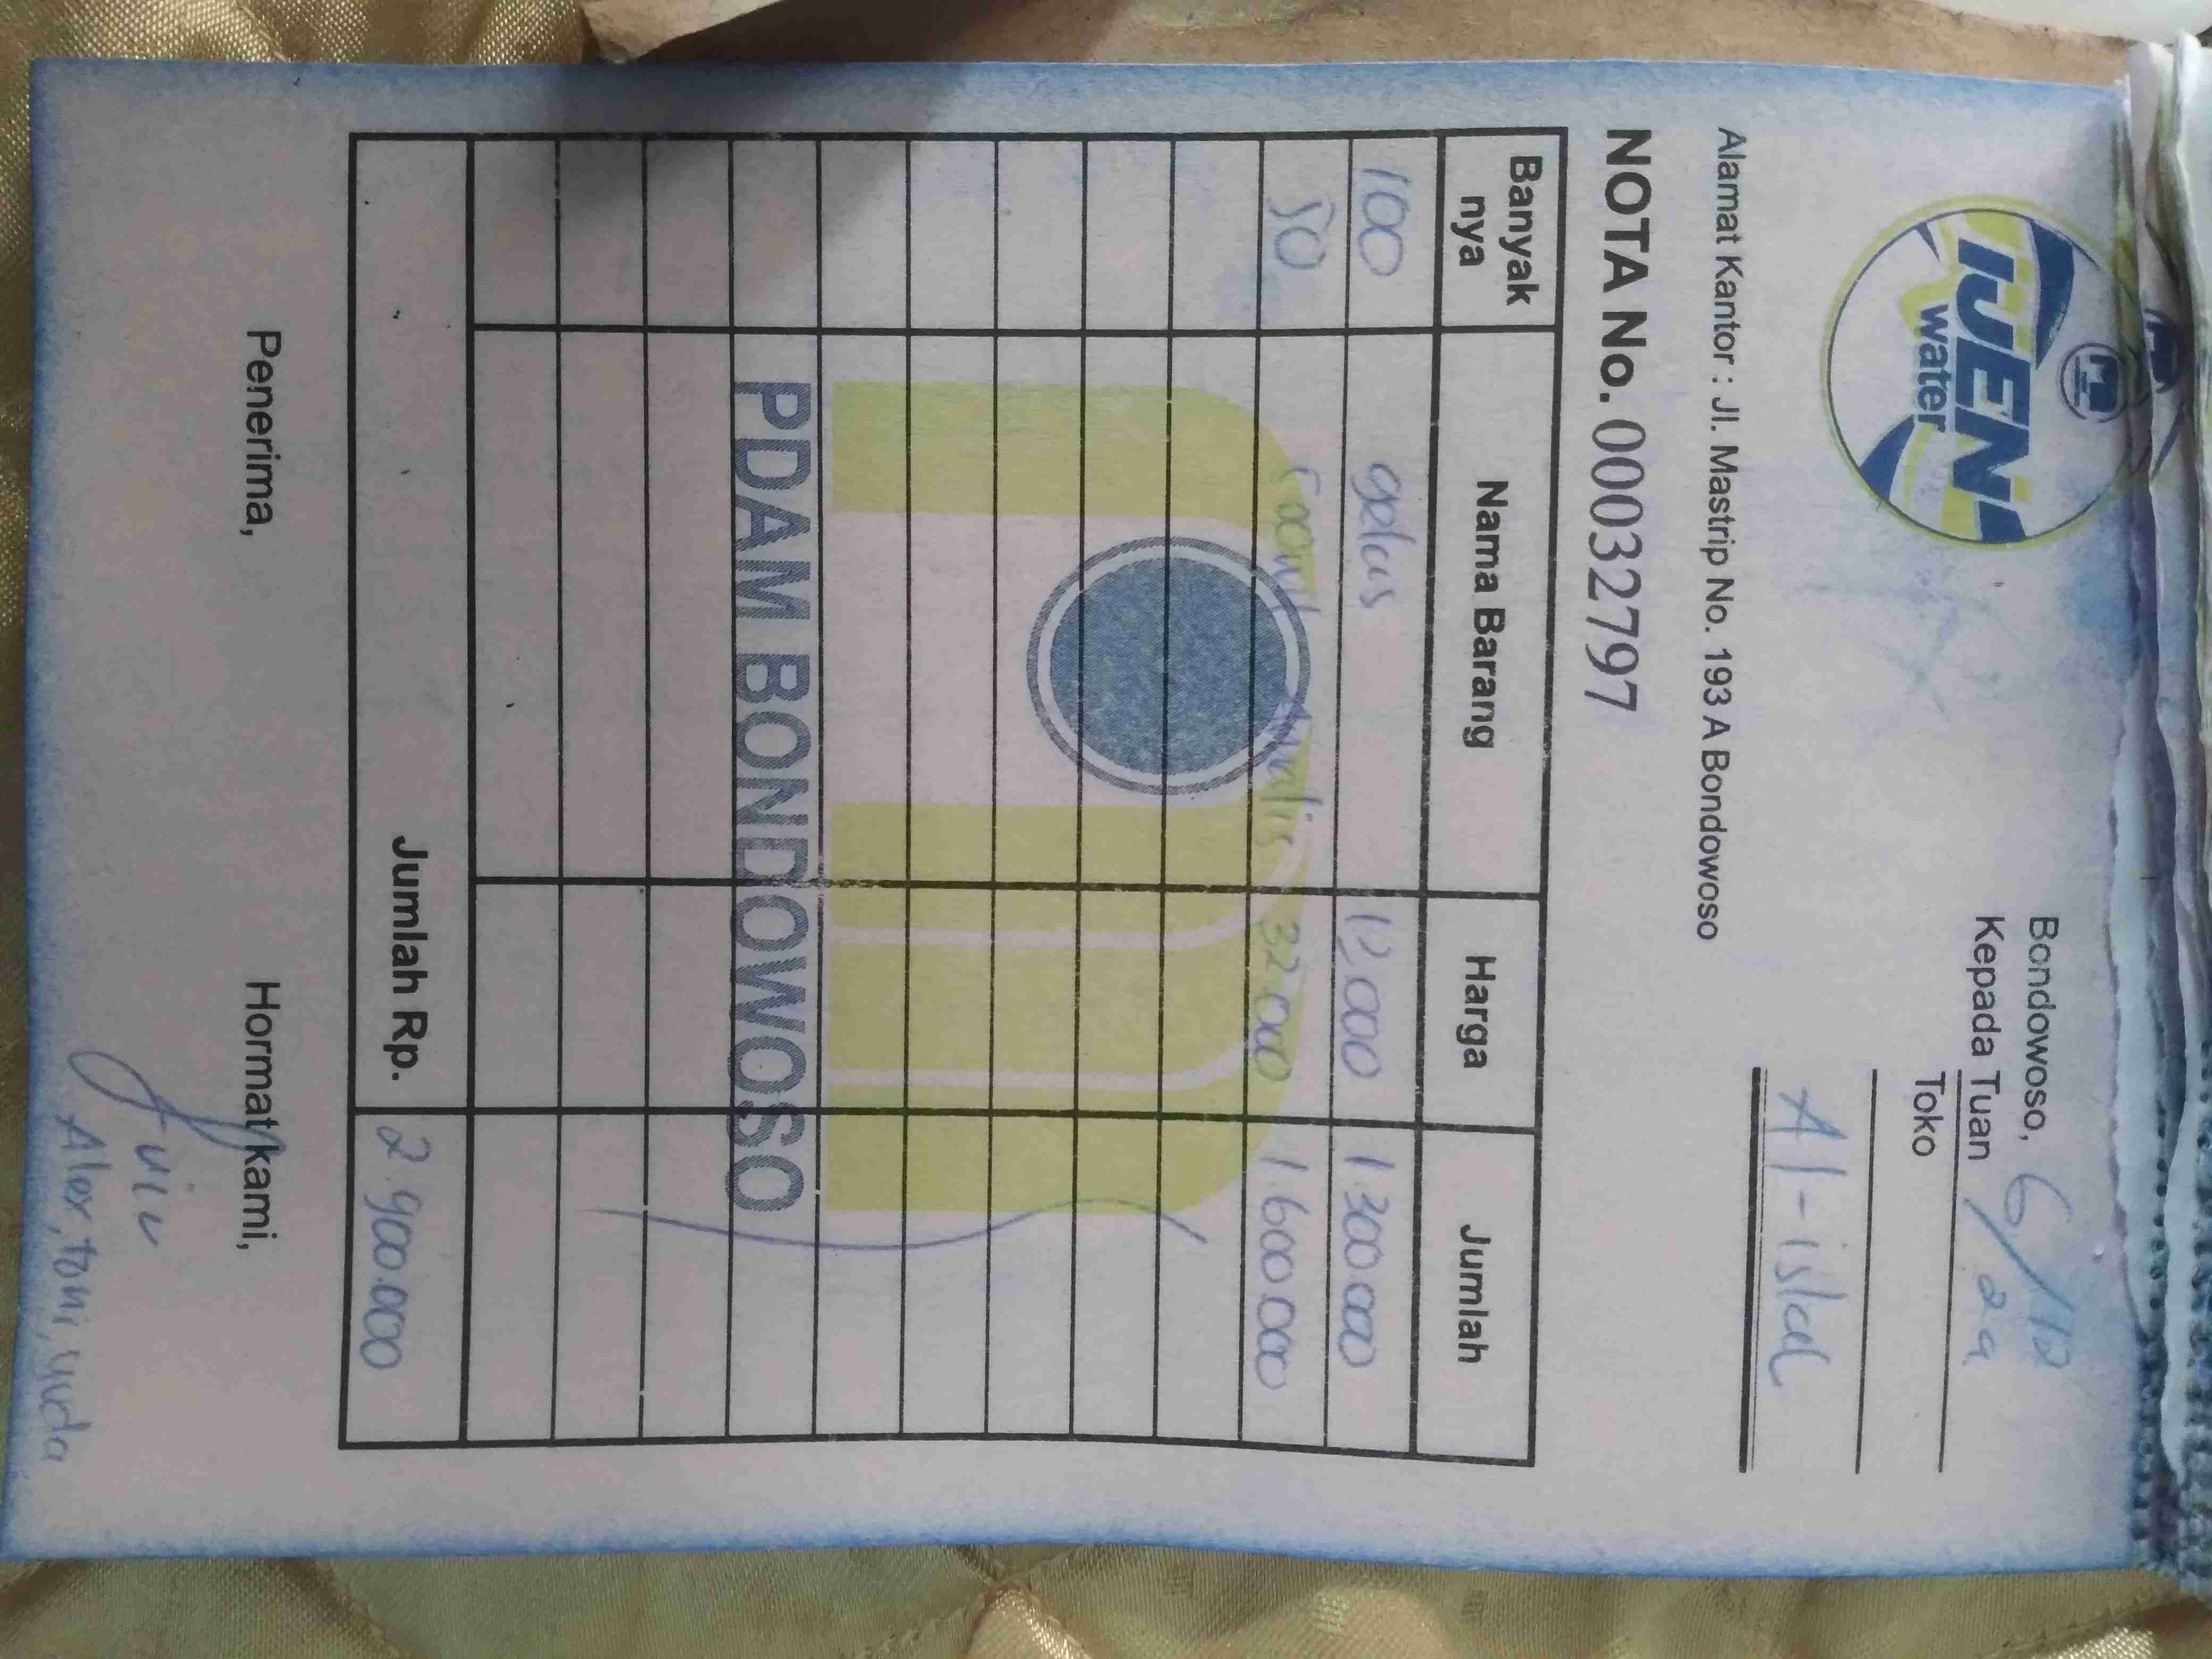 IJEN
water
Bondowoso, 6/12 24
Kepada Tuan
Toko
Al-ishal
Alamat Kantor : Jl. Mastrip No. 193 A Bondowoso
NOTA No. 00032797
Banyak nya Nama Barang Harga Jumlah
100 gelas 13.000 1.300.000
50 32.000 1.600.000
PDAM BONDOWOSO
Jumlah Rp. 2.900.000
Penerima, Hormat kami,
Alex, toni, yuda